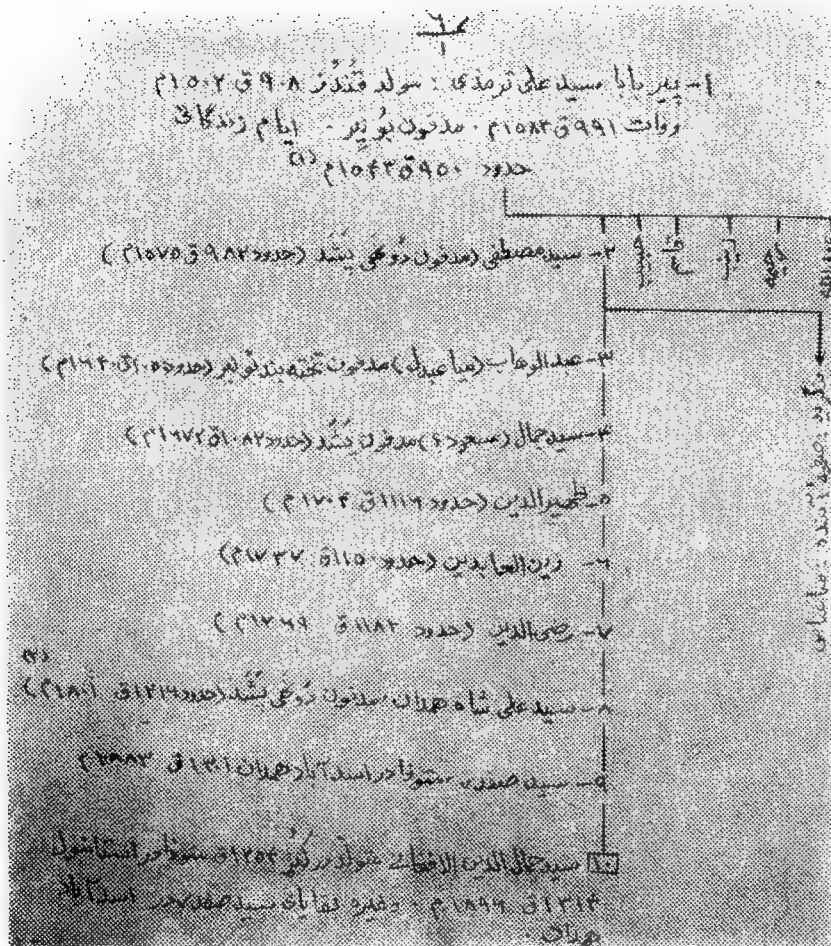 ۱- پیر بابا سید علی ترمذی : مولد قُندُز ۹۰۸ ق ۱۵۰۲م
وفات ۹۹۱ق ۱۵۸۳م . مدفون بُونیر - ایام زندگانی
حدود ۹۵۰ق ۱۵۴۳م (۱)
۲- سید مصطفی (مدفون دُوغَی پَشَد (حدود ۹۸۲ ق ۱۵۷۵م)
۳- عبدالوهاب (میا عبدل) مدفون تخته بند بونیر (حدود ق ۱۶۴۰م)
۴- سید جمال (مسعود ؟) مدفون پَشَد (حدود ۱۰۸۲ق ۱۶۷۲م)
۵- ظهیرالدین (حدود ۱۱۱۶ق ۱۷۰۴م)
۶- زین العابدین (حدود ۱۱۵۰ق ۱۷۳۷م)
۷- رضی الدین (حدود ۱۱۸۲ق ۱۷۶۹م)
۸- سید علی شاه همدان مدفون دُوغَی پَشَد (حدود ۱۲۱۶ق ۱۸۰۱م) (۲)
۹- سید صفدر متوفا در اسدآباد همدان ۱۳۰۱ق ۱۸۸۳م
۱۰ سید جمال الدین الافغانی متولد در کُنر ۱۲۵۴ق متوفا در استانبول
۱۳۱۴ق ۱۸۹۶م . وغیره بقایای سید صفدر در اسدآباد
همدان .
بگرید بصفحه آینده :